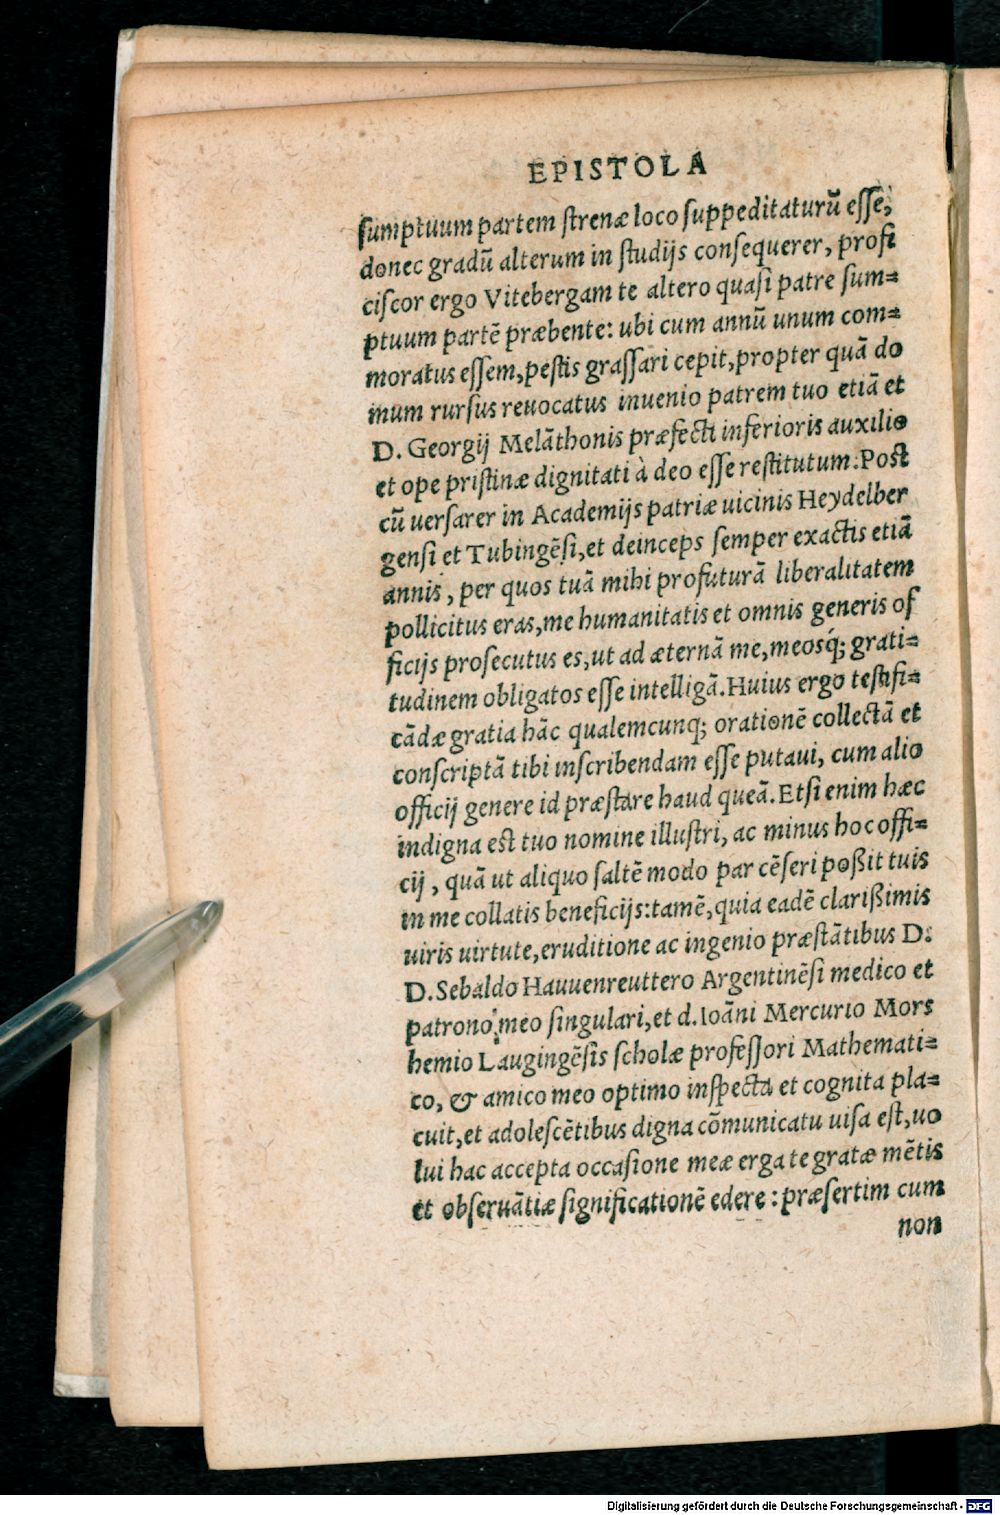 EPISTOLA
sumptuum partem strenæ loco suppeditaturū esse,
donec gradū alterum in studijs consequerer, profi
ciscor ergo Vitebergam te altero quasi patre sum=
ptuum partē præbente: ubi cum annū unum com=
moratus essem, pestis grassari cepit, propter quā do
mum rursus reuocatus inuenio patrem tuo etiā et
D. Georgij Melāthonis præfecti inferioris auxilio
et ope pristinæ dignitati à deo esse restitutum: Post
cū uersarer in Academijs patriæ uicinis Heydelber
gensi et Tubingēsi, et deinceps semper exactis etiā
annis, per quos tuā mihi profuturā liberalitatem
pollicitus eras, me humanitatis et omnis generis of
ficijs prosecutus es, ut ad æternā me, meosq́; grati=
tudinem obligatos esse intelligā. Huius ergo testifi=
cādæ gratia hāc qualemcunq; orationē collectā et
conscriptā tibi inscribendam esse putaui, cum alio
officij genere id præstare haud queā. Etsi enim hæc
indigna est tuo nomine illustri, ac minus hoc offi=
cij, quā ut aliquo saltē modo par cēseri poßit tuis
in me collatis beneficijs: tamē, quia eadē clarißimis
uiris uirtute, eruditione ac ingenio præstātibus D.
D. Sebaldo Hauuenreuttero Argentinēsi medico et
patrono meo singulari, et d. Ioāni Mercurio Mors
hemio Laugingēsis scholæ professori Mathemati=
co, & amico meo optimo inspecta et cognita pla=
cuit, et adolescētibus digna cōmunicatu uisa est, uo
lui hac accepta occasione meæ erga te gratæ mētis
et obseruātiæ significationē edere: præsertim cum
non
Digitalisierung gefördert durch die Deutsche Forschungsgemeinschaft - DFG